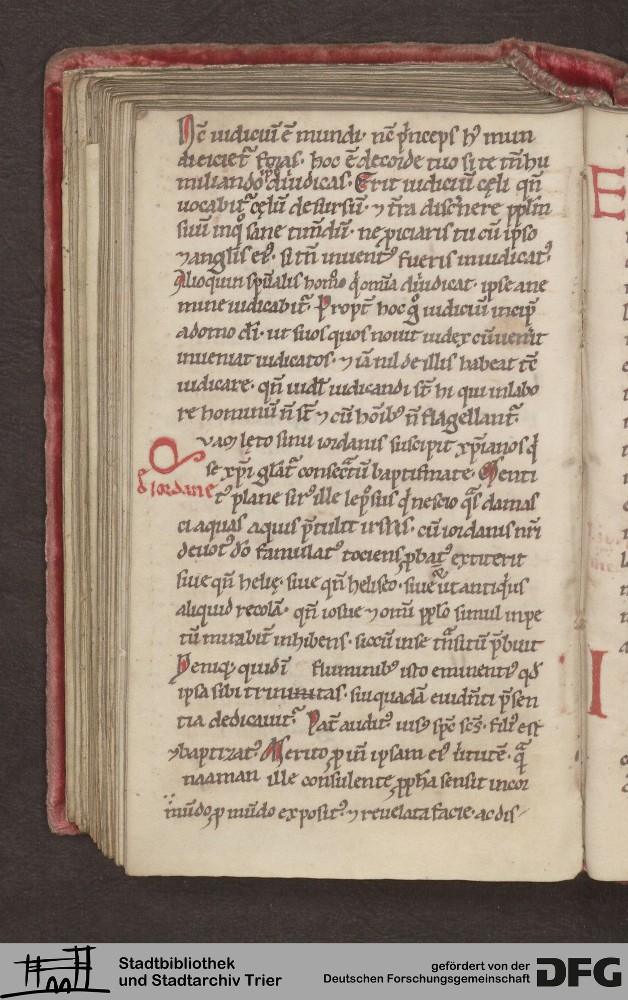 Nc̄ iudiciū ē mundi · nc̄ p̍nceps hꝰ mun
di eicietᷣ foras · hoc ē de corde tuo si te tm̄ hu
miliando diiudicas · Erit iudiciū cęli qn̄
uocabitᷣ cęlū desursū · ⁊ tr̄a discernere pplm̄
suū inqͦ sane timdū · ne piciaris tu cū ipso
⁊ angl̓is eiꝰ · si tn̄ inuentꝰ fueris iniudicatꝰ
Alioquin spūalis homo q̍ omīa diiudicat · ipse a ne
mine iudicabitᷣ · Propt̄ hoc gͦ iudiciū incip̄
a domo dī · ut suos quos nouit iudex cū uenerit
inueniat iudicatos · ⁊ iā nil de illis habeat tē
iudicare · qn̄ uidl̓ iudicandi st̄ hi qui in labo
re hominū n̄ st̄ ⁊ cū hōibꝰ n̄ flagellantᷣ ·
Quam lęto sinu iordanis suscipit xp̄ianos q̍
d̓ iordane
se xp̄i gl̓atᷣ consecrātū baptismate · Menti
tꝰ plane sirꝰ ille lep̄sus q̍ nescio qͣs damas
ci aquas aquis p̄tulit isrl̓is · cū iordanis nr̄i
deuotꝰ dō famulatꝰ tociens ꝓbatꝰ extiterit
siue qn̄ helię · siue qn̄ heliseo · siue ut antiqͥus
aliquid recolā · qn̄ iosue ⁊ omī pplo simul inpe
tū mirabiłr inhibens · siccū in se tnͣsitū p̄buit
Deniqꝫ quid ī fluminibꝰ isto eminentiꝰ qd̓
ipsa sibi trinitas · sui quadā euidn̄ti p̄sen
tia dedicauit · Pat̄ auditꝰ uisꝰ spc̄ sc̄s · filiꝰ est
⁊ baptizatꝰ Merito ꝓ in̄ ipsam eiꝰ uirtutē · qͣ
naaman ille consulente ꝓpha sensit in cor
mūdo ꝓ mūdo expositꝰ ⁊ reuelata facie · ac dis-
Stadtbibliothek
und Stadtarchiv Trier
gefördert von der
Deutschen Forschungsgemeinschaft
DFG